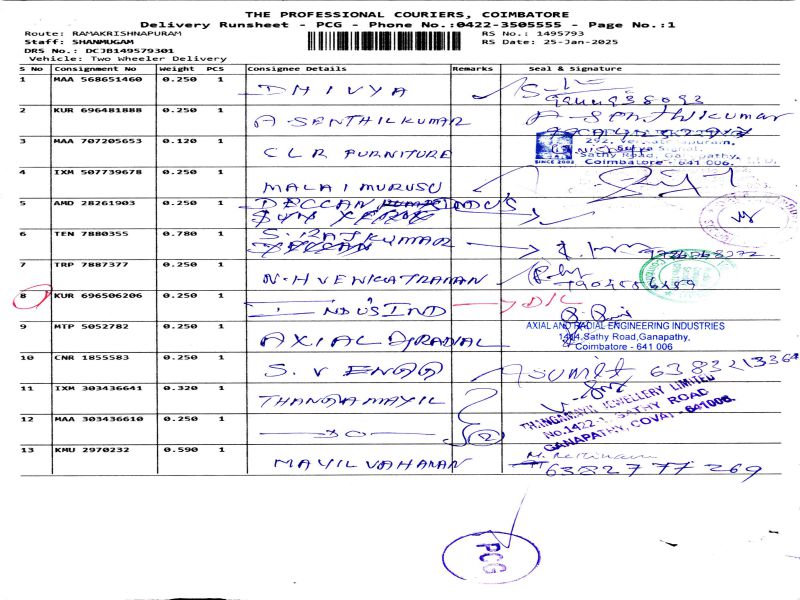 THE PROFESSIONAL COURIERS, COIMBATORE
Delivery Runsheet - PCG - Phone No.:0422-3505555 - Page No.:1
Route: RAMAKRISHNAPURAM
RS No.: 1495793
Staff: SHANMUGAM
RS Date: 25-Jan-2025
DRS No.: DCJB149579301
Vehicle: Two Wheeler Delivery
S No Consignment No Weight PCS Consignee Details Remarks Seal & Signature
1 MAA 568651460 0.250 1 DHIVYA
2 KUR 696481888 0.250 1 A SENTHILKUMAR A-Senthilkumar
3 MAA 707205653 0.120 1 CLR FURNITURE
Sathy Road, Ganapathy,
SINCE 2002 Coimbatore - 641 006.
4 IXM 507739678 0.250 1 MALAIMURUSU
5 AMD 28261903 0.250 1 DECCAN
6 TEN 7880355 0.780 1 S. RAJKUMAR
7 TRP 7887377 0.250 1 N.H VENKATRAMAN
8 KUR 696506206 0.250 1 INDUSIND D/L
9 MTP 5052782 0.250 1 AXIAL &RADIAL
AXIAL AND RADIAL ENGINEERING INDUSTRIES
1414,Sathy Road,Ganapathy,
Coimbatore - 641 006
10 CNR 1855583 0.250 1 S. V ENGG Sumit 6383213364
11 IXM 303436641 0.320 1 THANGAMAYIL
THANGAMAYIL JEWELLERY LIMITED
No.1422-1, SATHY ROAD
GANAPATHY, COVAI - 641006.
12 MAA 303436610 0.250 1 DO 2
13 KMU 2970232 0.590 1 MAYILVAHANAN
6382777269
PCG